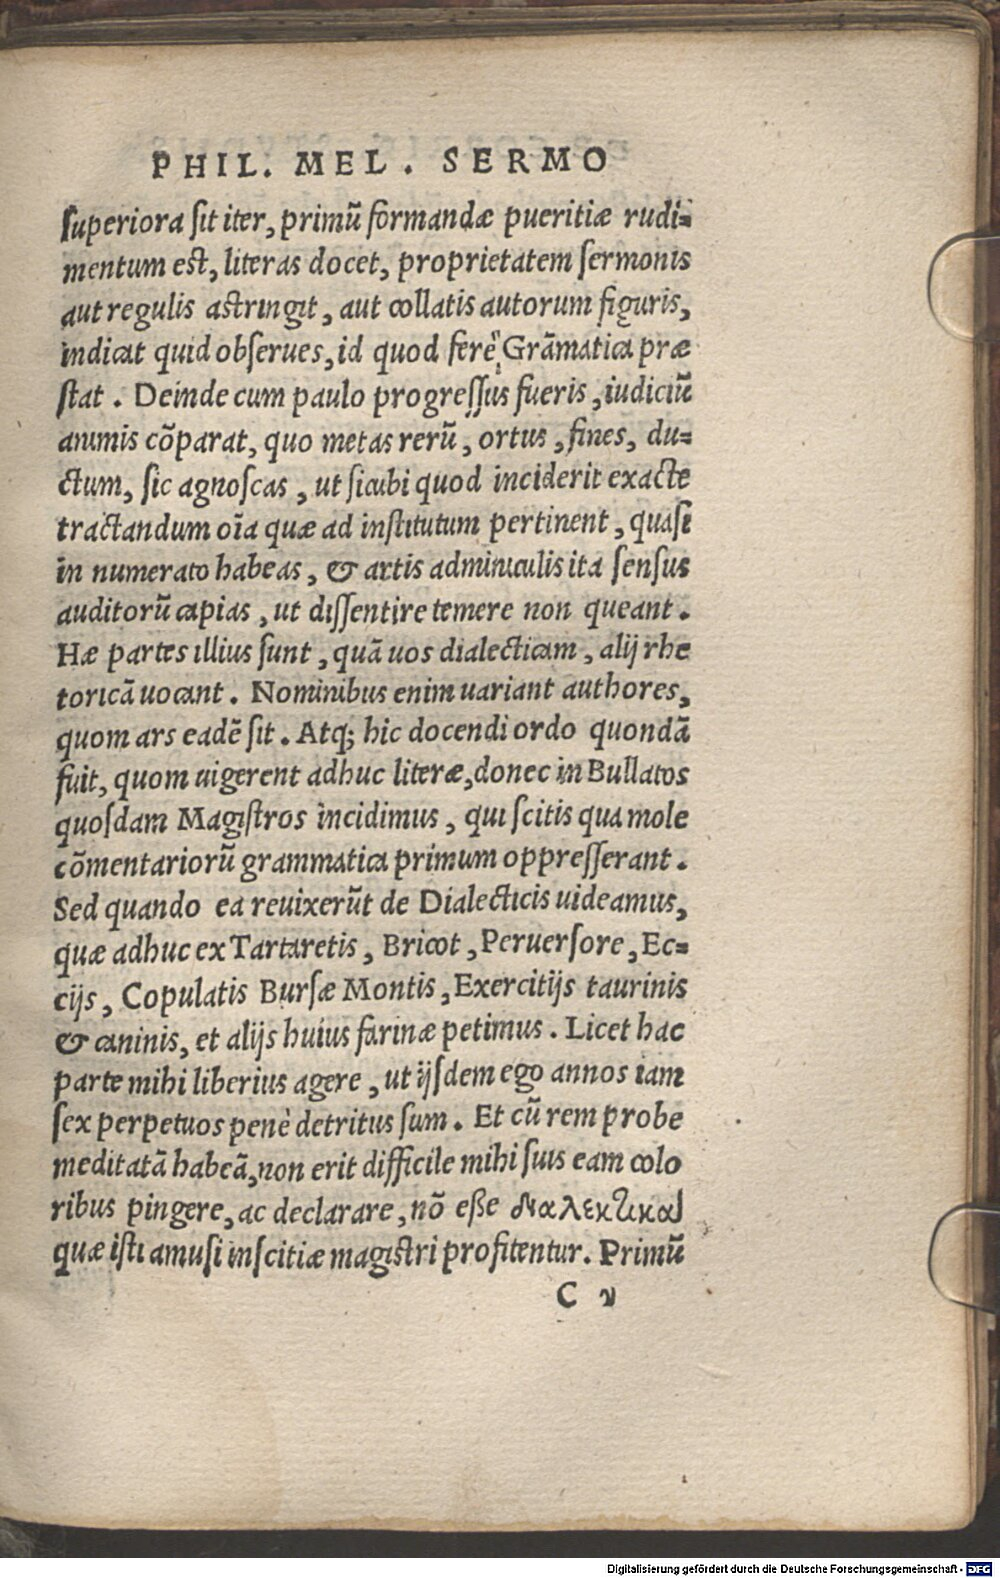 PHIL. MEL. SERMO
superiora sit iter, primũ formandæ pueritiæ rudi-
mentum est, literas docet, proprietatem sermonis
aut regulis astringit, aut collatis autorum figuris,
indicat quid obserues, id quod ferè Grãmatica præ
stat. Deinde cum paulo progressus fueris, iudiciũ
animis cõparat, quo metas rerũ, ortus, fines, du-
ctum, sic agnoscas, ut sicubi quod inciderit exacte
tractandum oĩa quæ ad institutum pertinent, quasi
in numerato habeas, & artis adminiculis ita sensus
auditorũ capias, ut dissentire temere non queant.
Hæ partes illius sunt, quã uos dialecticam, alij rhe
toricã uocant. Nominibus enim uariant authores,
quom ars eadẽ sit. Atq; hic docendi ordo quondã
fuit, quom uigerent adhuc literæ, donec in Bullatos
quosdam Magistros incidimus, qui scitis qua mole
cõmentariorũ grammatica primum oppresserant.
Sed quando ea reuixerũt de Dialecticis uideamus,
quæ adhuc ex Tartaretis, Bricot, Peruersore, Ec-
cijs, Copulatis Bursæ Montis, Exercitijs taurinis
& caninis, et alijs huius farinæ petimus. Licet hac
parte mihi liberius agere, ut ijsdem ego annos iam
sex perpetuos penè detritus sum. Et cũ rem probe
meditatã habeã, non erit difficile mihi suis eam colo
ribus pingere, ac declarare, nõ eße διαλεκτικαὶ
quæ isti amusi inscitiæ magistri profitentur. Primũ
C v
Digitalisierung gefördert durch die Deutsche Forschungsgemeinschaft - DFG